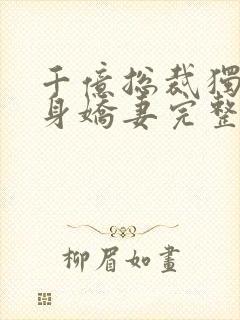 千億總裁獨
身嬌妻完整
柳眉如畫